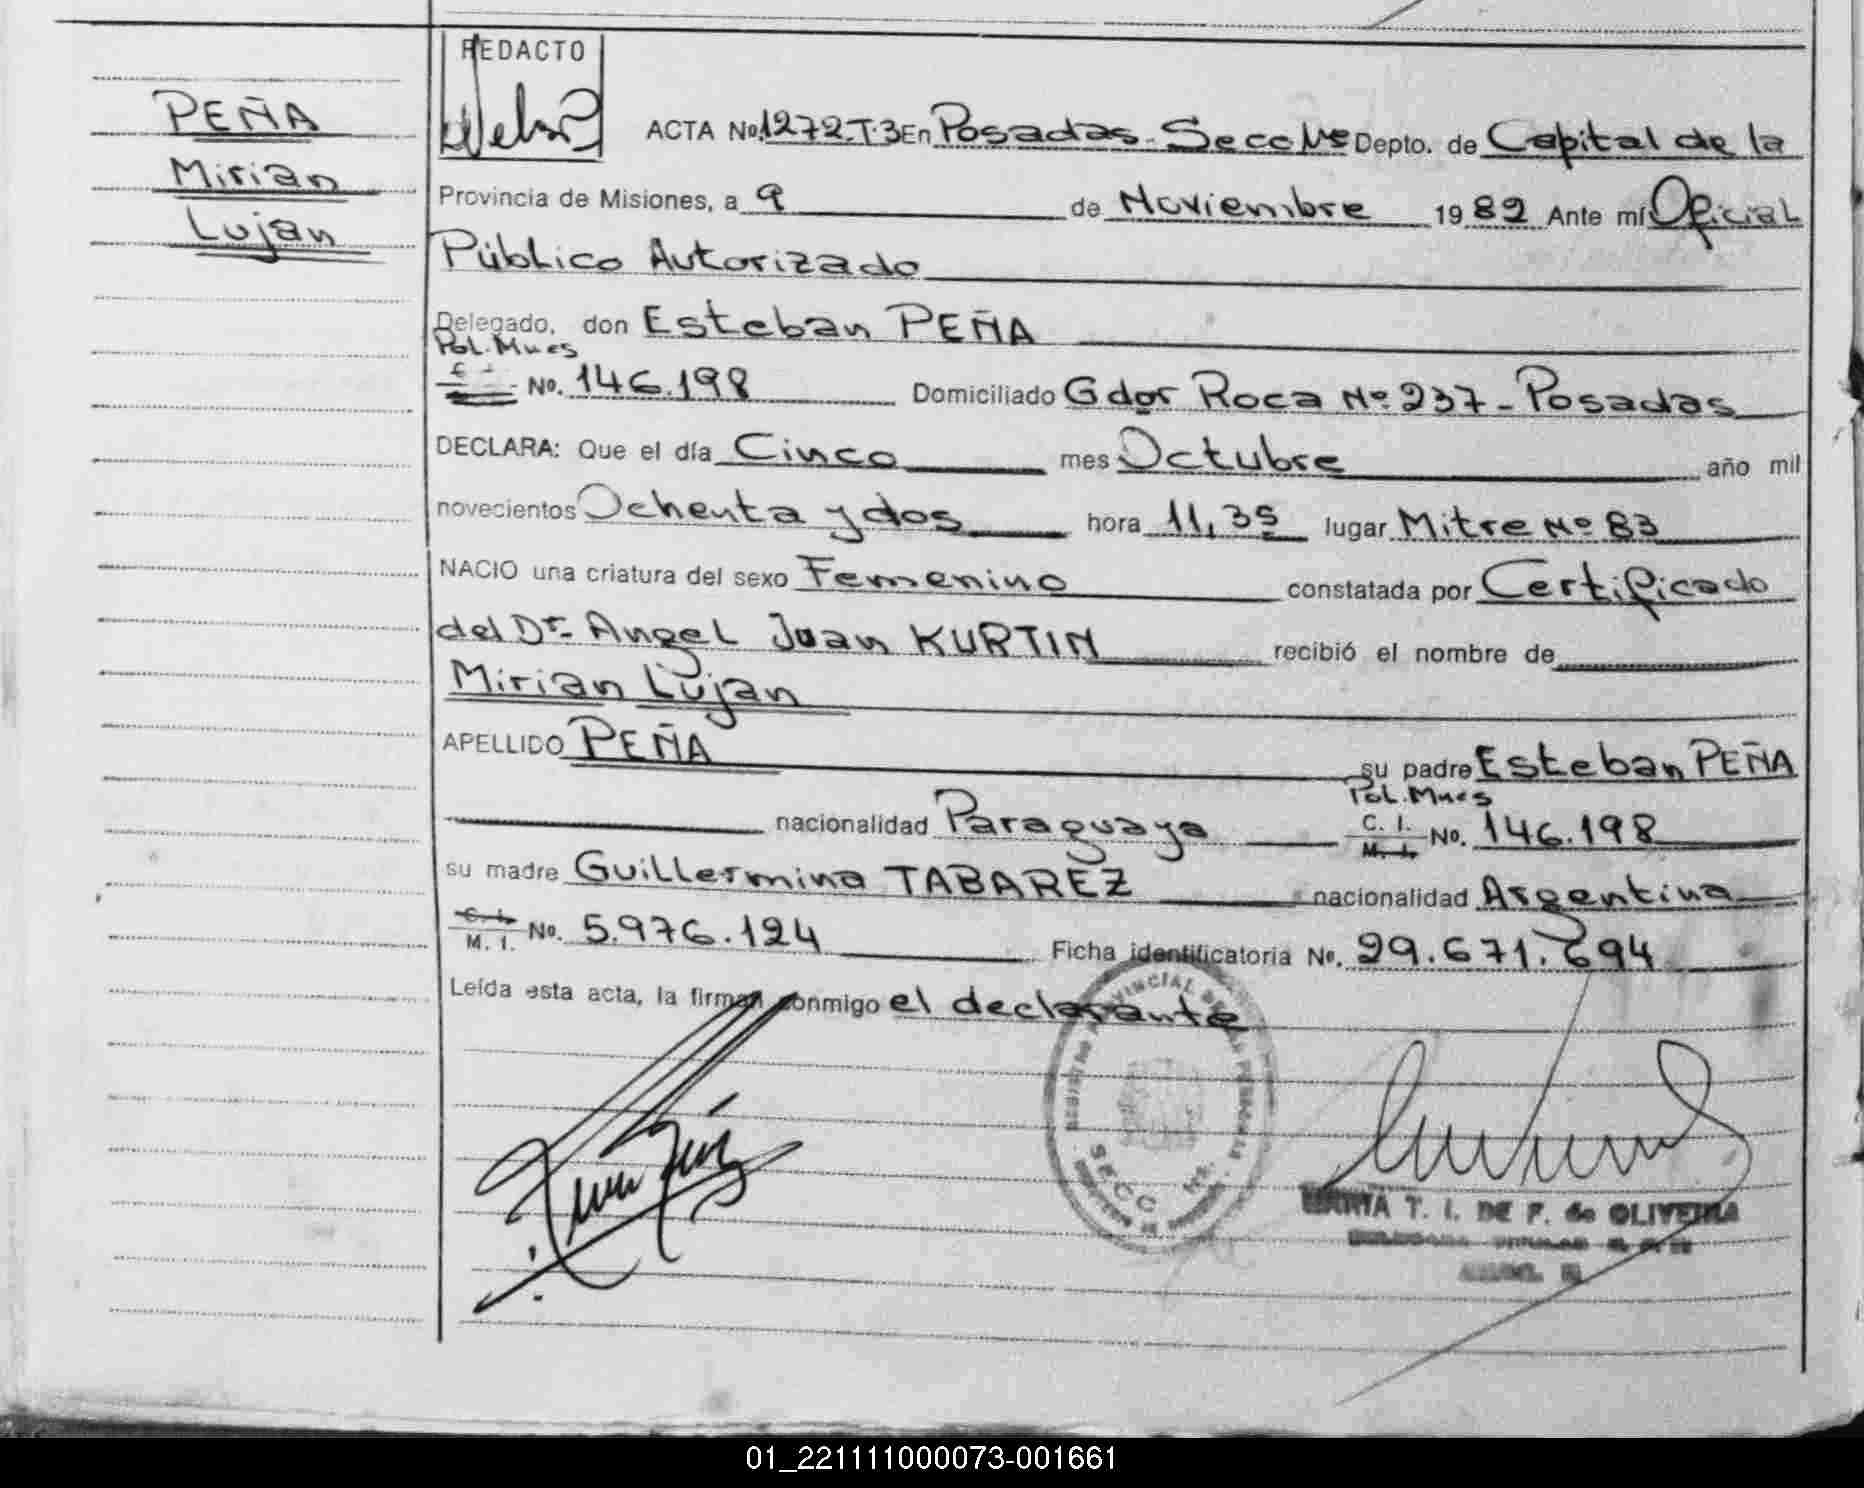 REDACTO
PEÑA
Mirian
Lujan
ACTA No. 1272-T.3 En Posadas-Secc Depto. de Capital de la
Provincia de Misiones, a 9 de Noviembre 1982 Ante mí Oficial
Público Autorizado
Delegado, don Esteban PEÑA
Pol. Mnes
No. 146.198 Domiciliado Gdor Roca Nº 237-Posadas
DECLARA: Que el día Cinco mes Octubre año mil
novecientos Ochenta y dos hora 11,35 lugar Mitre Nº 83
NACIO una criatura del sexo Femenino constatada por Certificado
del Dr. Angel Juan KURTIN recibió el nombre de
Mirian Lujan
APELLIDO PEÑA su padre Esteban PEÑA
Pol. Mnes
nacionalidad Paraguaya C. I. M. I. No. 146.198
su madre Guillermina TABAREZ nacionalidad Argentina
C. I. M. I. No. 5.976.124 Ficha identificatoria No. 29.671.694
Leída esta acta, la firman conmigo el declarante
SECC
MARIA T. I. DE F. de OLIVEIRA
01_221111000073-001661